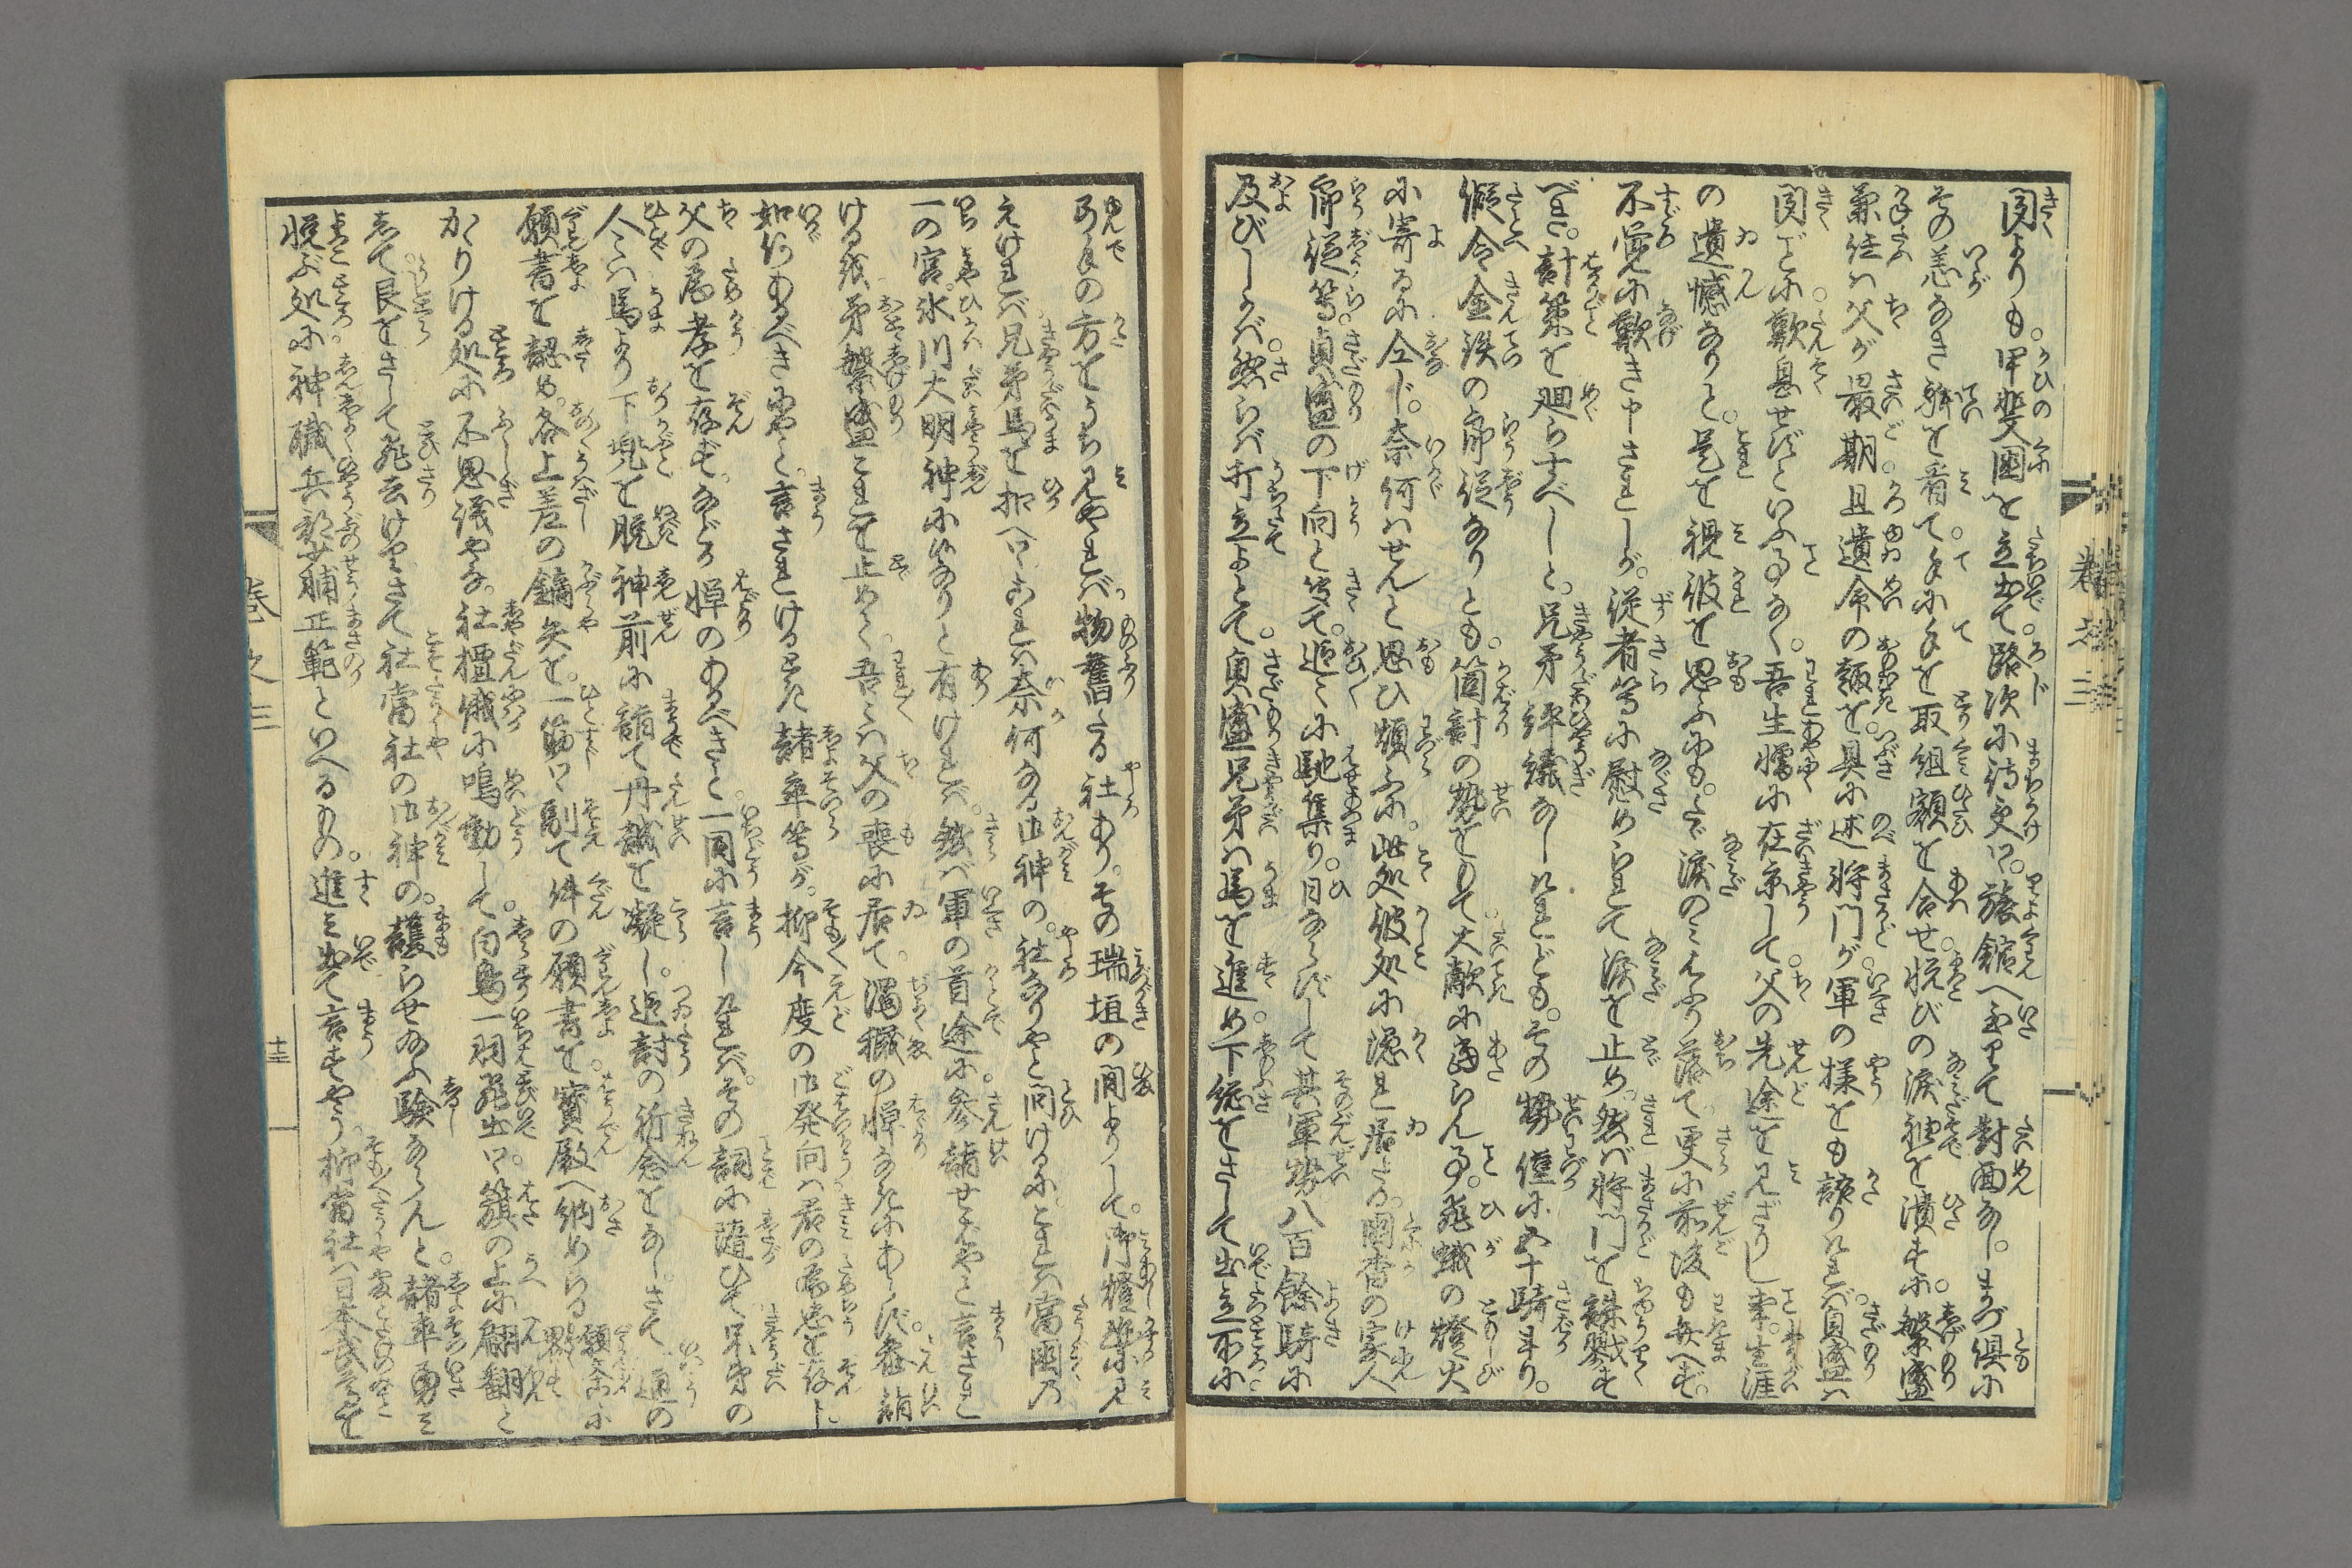 聞よりも。甲斐国を立出て。路次に待受て。旅館へ至りて対面なし。まづ倶に
その恙なき躰を看て。手に手を取組額を合せ。悦びの涙袖を漬すに。繁盛
兼任は父が最期且遺命の趣を。具に述将門が軍の様をも語りければ。貞盛は
聞ごとに歎息せずといふ事なく。吾生憎に在京して。父の先途を見ざりし事。生涯
の遺憾なりと。是を視彼を思ふにも。たゞ涙のみふり落て。更に前後も弁へず。
不覚に歎き申されしが。従者等に慰められて涙を止め。然ば将門を誅戮す
べき。計策を廻らすべしと。兄弟評議なしけれども。その勢僅に五十騎斗り。
縦令金鉄の郎従なりとも。箇計の勢をもて大敵に当らん事。飛蛾の燈火
に寄るに仝じ。奈何はせんと思ひ煩ふに。此処彼処に隠れ居たる。国香の家人
郎従等。貞盛の下向と聞て。追々に馳集り。日ならずして其軍勢八百餘騎に
及びしかば。然らば打立よとて。貞盛兄弟は馬を進め下総をさして出立所に
弓手の方をうち見やれば。物舊たる社あり。その瑞垣の間よりして。御燈幽に見
えければ兄弟馬を扣へ。これは奈何なる御神の。社なりやと問けるに。これは当国の
一の宮。氷川大明神に候なりと有ければ。然ば軍の首途に参詣せばやと言され
ける を。弟繁盛これを止めて。吾々は父の喪に居て。濁穢の憚なきにあらず。参詣
如何あるべき哉と。言されけるとき諸卒等が。抑今度の御発向は君の為忠を存し
父の為孝を存ず。などか憚のあるべきと。一同に言しければ。その詞に随ひて。兄弟の
人々は馬より下兜を脱神前に詣て丹誠を凝し。追討の祈念をなし。さて一通の
願書を認め。各上差の鏑矢を。一筋に副て件の願書を。宝殿へ納めらる願念に
かゝりける処に不思議やな。社檀俄に鳴動して。白鳥一羽飛出て。籏の上に翩翻と
して艮をさして飛去けり。さては社当社の御神の。護らせ給ふ験ならんと。諸卒勇み
悦ぶ処に神職兵部少輔正範といへるもの。進み出て言すやう。抑当社は日本武尊を
巻之三
十三